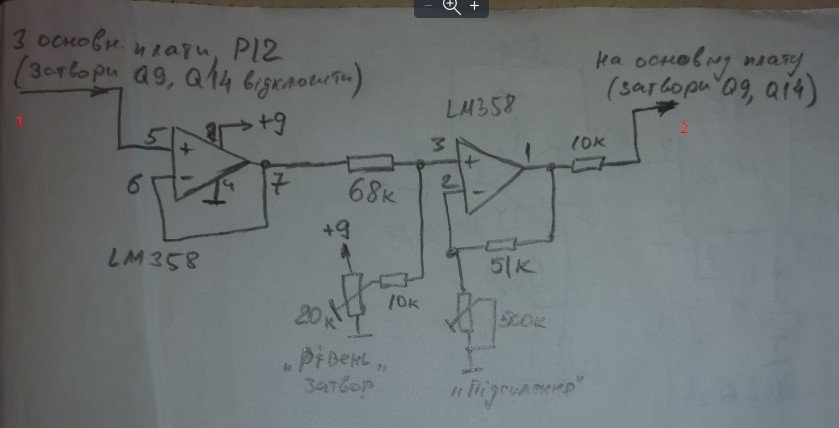 З основн. плати, P12
(Затвори Q9, Q14 відключити)
1
На основну плату
(Затвори Q9, Q14)
2
LM358
5
6
8
+9
4
7
LM358
68к
3
2
1
10к
51к
+9
20к
10к
500к
„Рівень„
Затвор
„Підсилення"